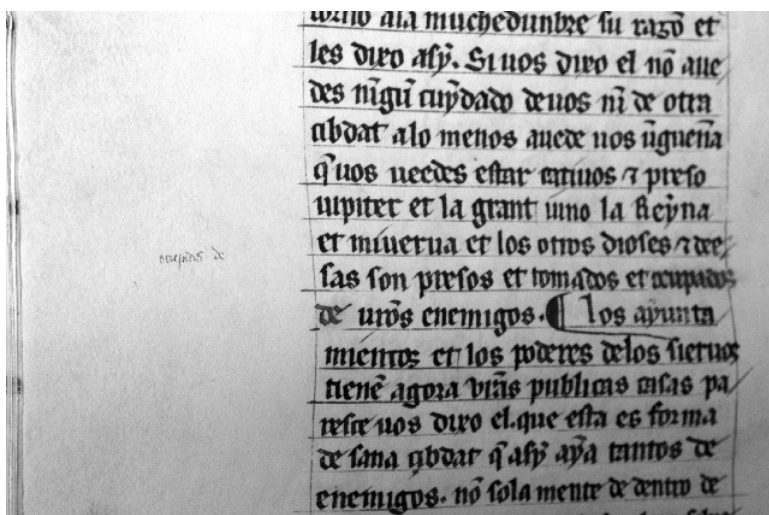 torno ala muchedunbre su razõ et
les dixo asỹ. Si uos dixo el nõ aue
des nĩgũ cuỹdado deuos nĩ de otra
çibdat alo menos auede uos ũgueña
q̃ uos ueedes estar catiuos ⁊ preso
iupiter et la grant iuno la Reỹna
et minerua et los otros dioses ⁊ dee
sas son presos et tomados et ocupados
de ur̃os enemigos. ¶ los aỹunta
mientos et los poderes delos sieruos
tienẽ agora vr̃as publicas casas pa
resce uos dixo el. que esta es forma
de sana çibdat q̃ asỹ aỹa tantos de
enemigos. nõ sola mente de dentro de
ocupados de